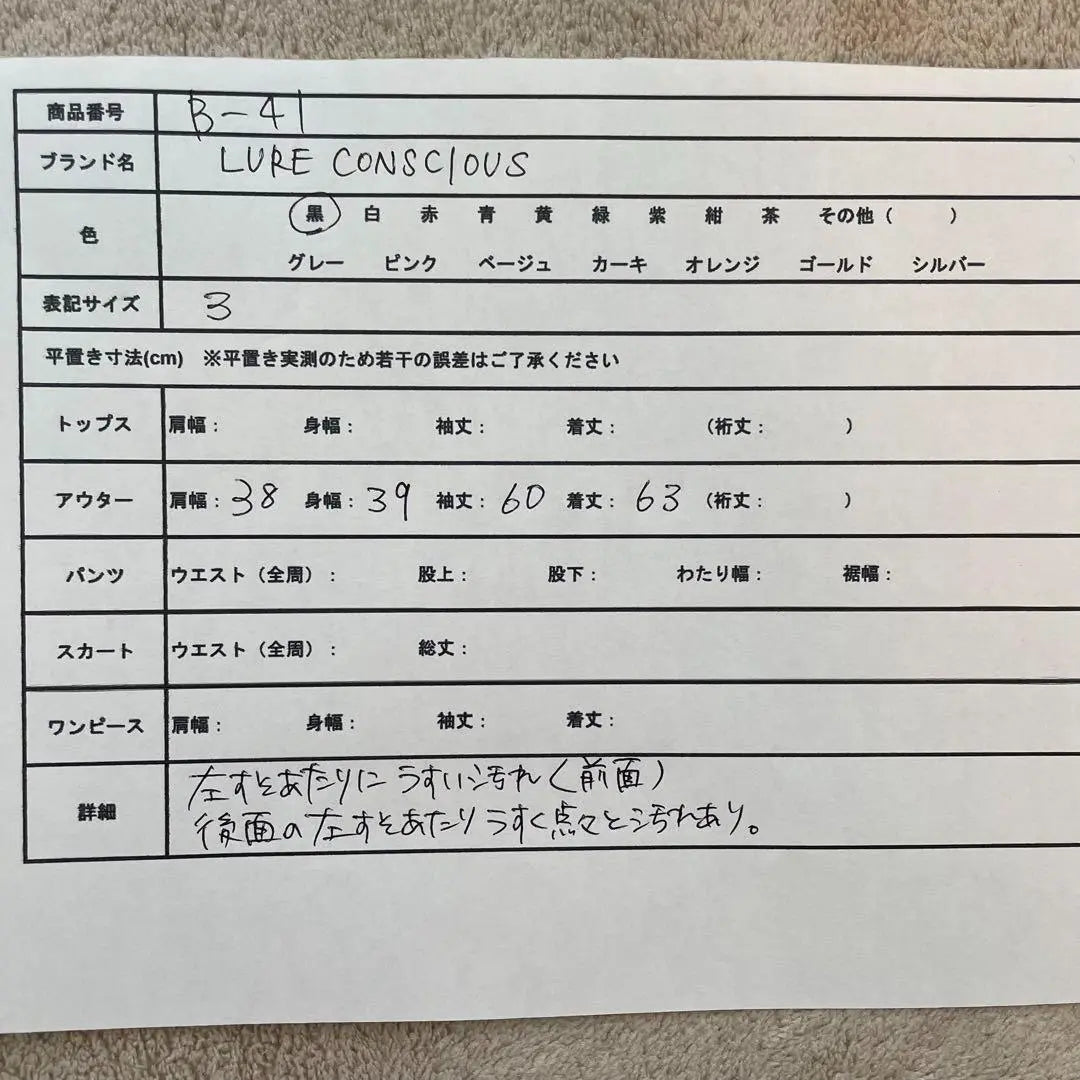 商品番号 B-41
ブランド名 LURE CONSCIOUS
色 黒 白 赤 青 黄 緑 紫 紺 茶 その他（ ）
グレー ピンク ベージュ カーキ オレンジ ゴールド シルバー
表記サイズ 3
平置き寸法(cm) ※平置き実測のため若干の誤差はご了承ください
トップス 肩幅： 身幅： 袖丈： 着丈： （裄丈： ）
アウター 肩幅：38 身幅：39 袖丈：60 着丈：63 （裄丈： ）
パンツ ウエスト（全周）： 股上： 股下： わたり幅： 裾幅：
スカート ウエスト（全周）： 総丈：
ワンピース 肩幅： 身幅： 袖丈： 着丈：
詳細 左すそあたりに うすい汚れ（前面）
後面の左すそあたりうすく点々と汚れあり。